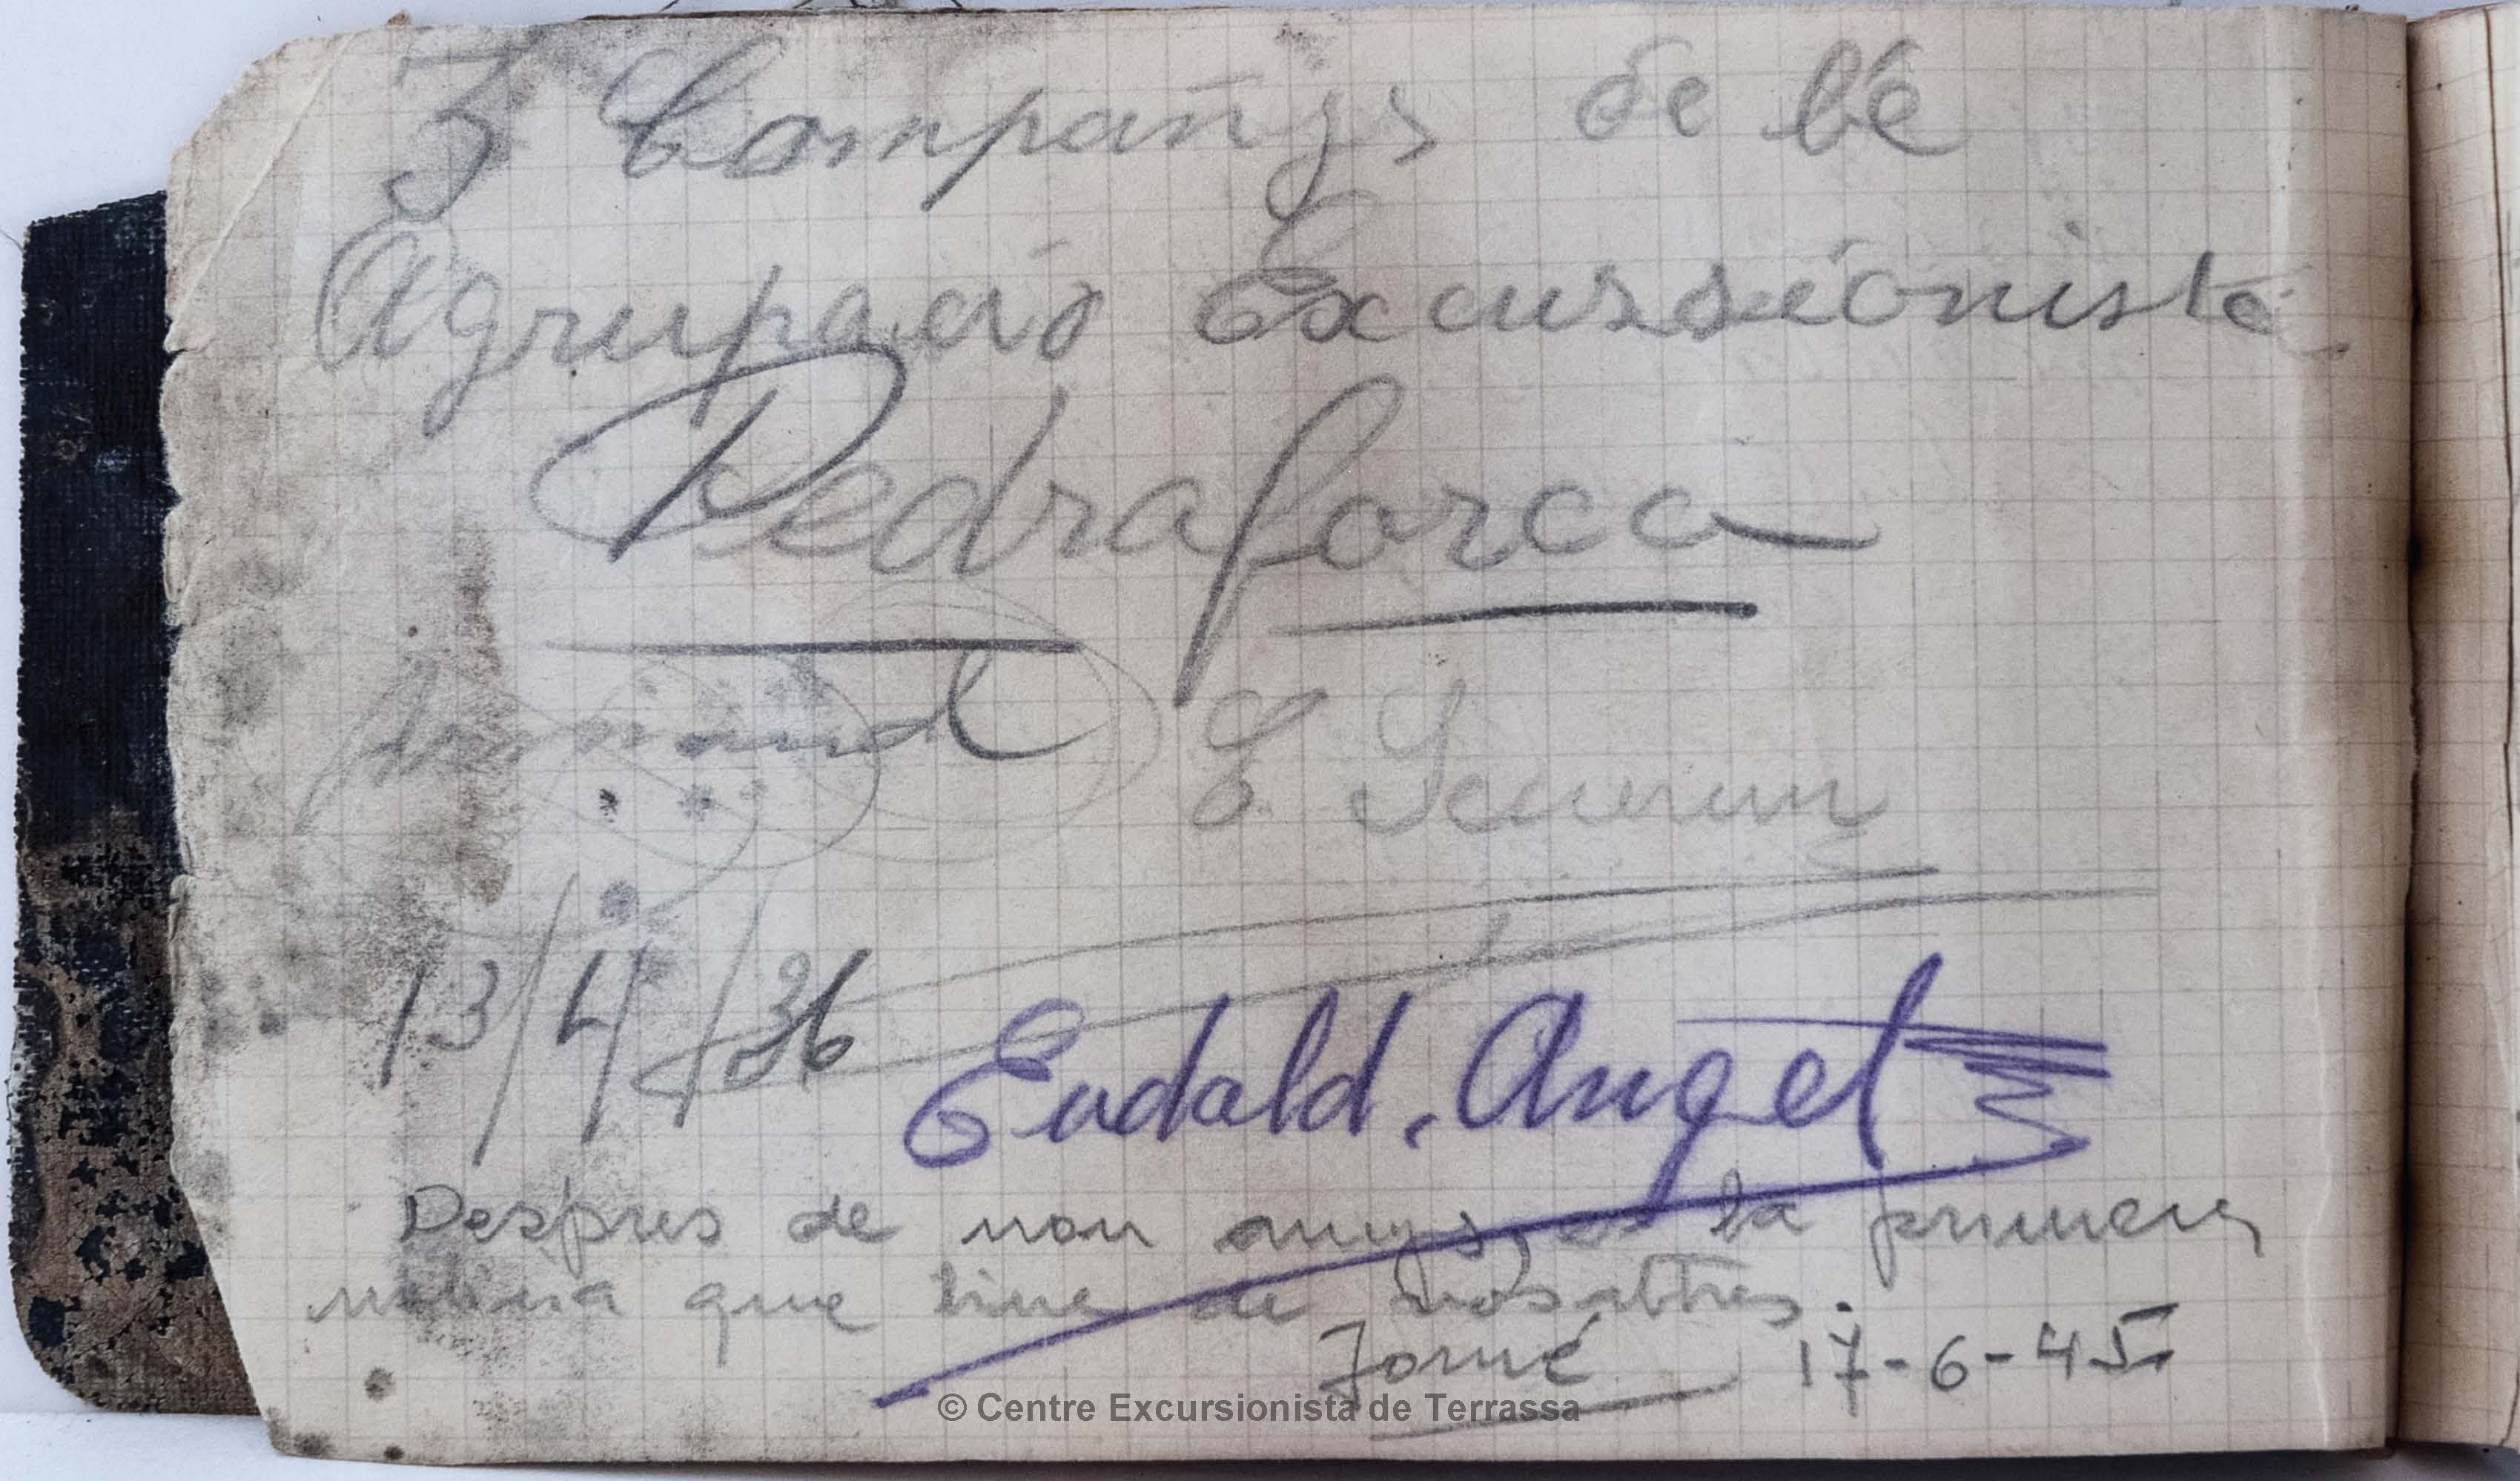 3 Compañys de la
Agrupació Excursionista
Pedraforca
Armand
13/4/36
Eudald. Angel
Despres de nou anys, es la primera
que tine de nosaltres.
Jomé 17-6-45
© Centre Excursionista de Terrassa